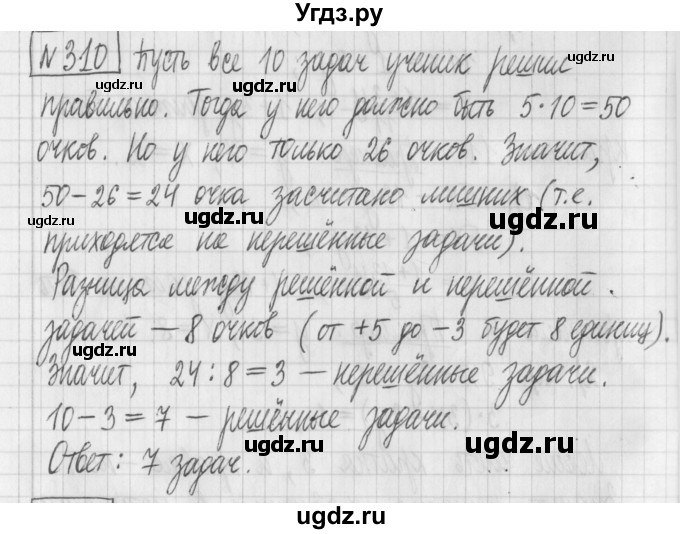 Угдз.ру
№310 Пусть все 10 задач ученик решил
правильно. Тогда у него должно быть 5·10=50
очков. Но у него только 26 очков. Значит,
50-26=24 очка засчитано лишних (т.е.
приходятся на нерешённые задачи).
Разница между решённой и нерешённой
задачей — 8 очков (от +5 до -3 будет 8 единиц).
Значит, 24:8=3 — нерешённые задачи.
10-3=7 — решённые задачи.
Ответ: 7 задач.
ugdz.ru
ugdz.ru
ugdz.ru
ugdz.ru
ugdz.ru
ugdz.ru
ugdz.ru
ugdz.ru
ugdz.ru
ugdz.ru
ugdz.ru
ugdz.ru
ugdz.ru